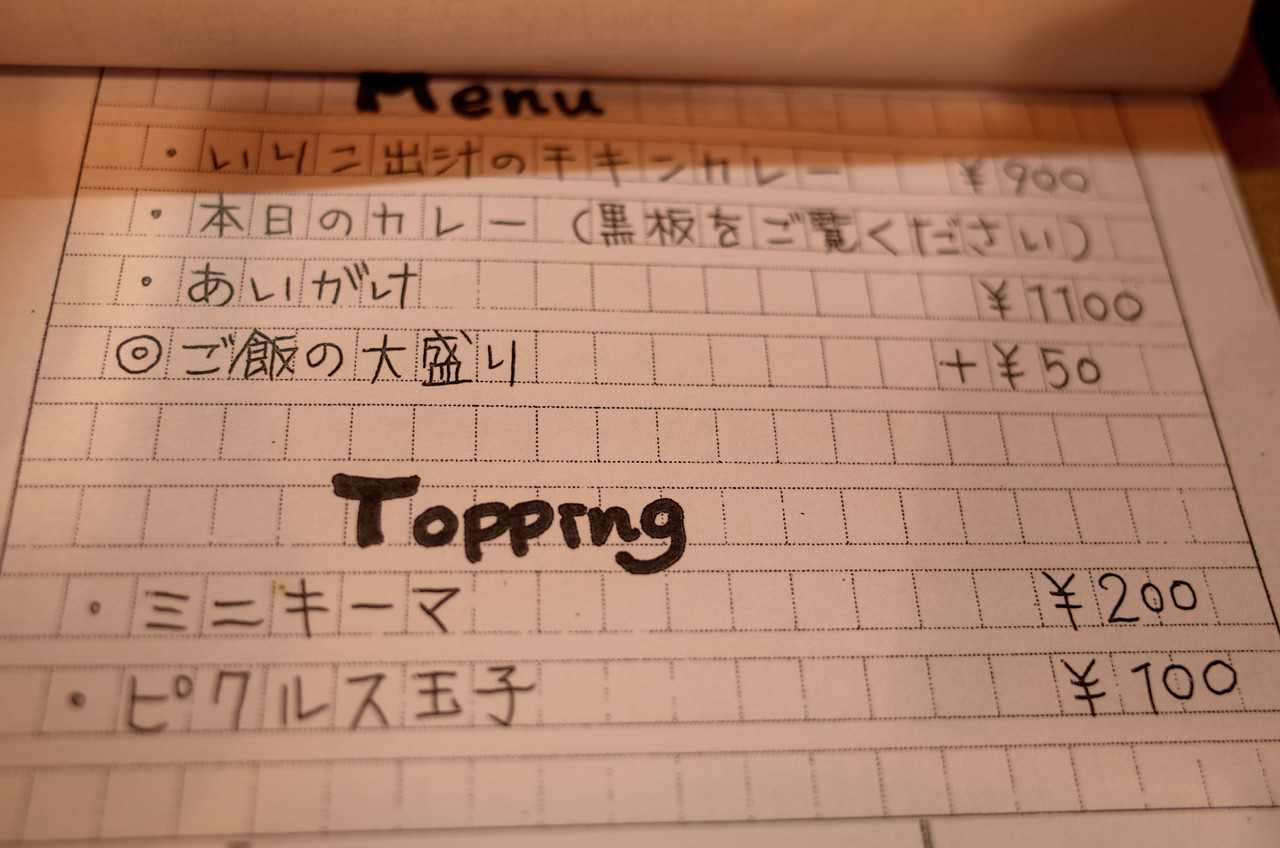 Menu
・いりこ出汁のチキンカレー ¥900
・本日のカレー（黒板をご覧ください）
・あいがけ ¥1100
◎ご飯の大盛り +¥50
Topping
・ミニキーマ ¥200
・ピクルス玉子 ¥100